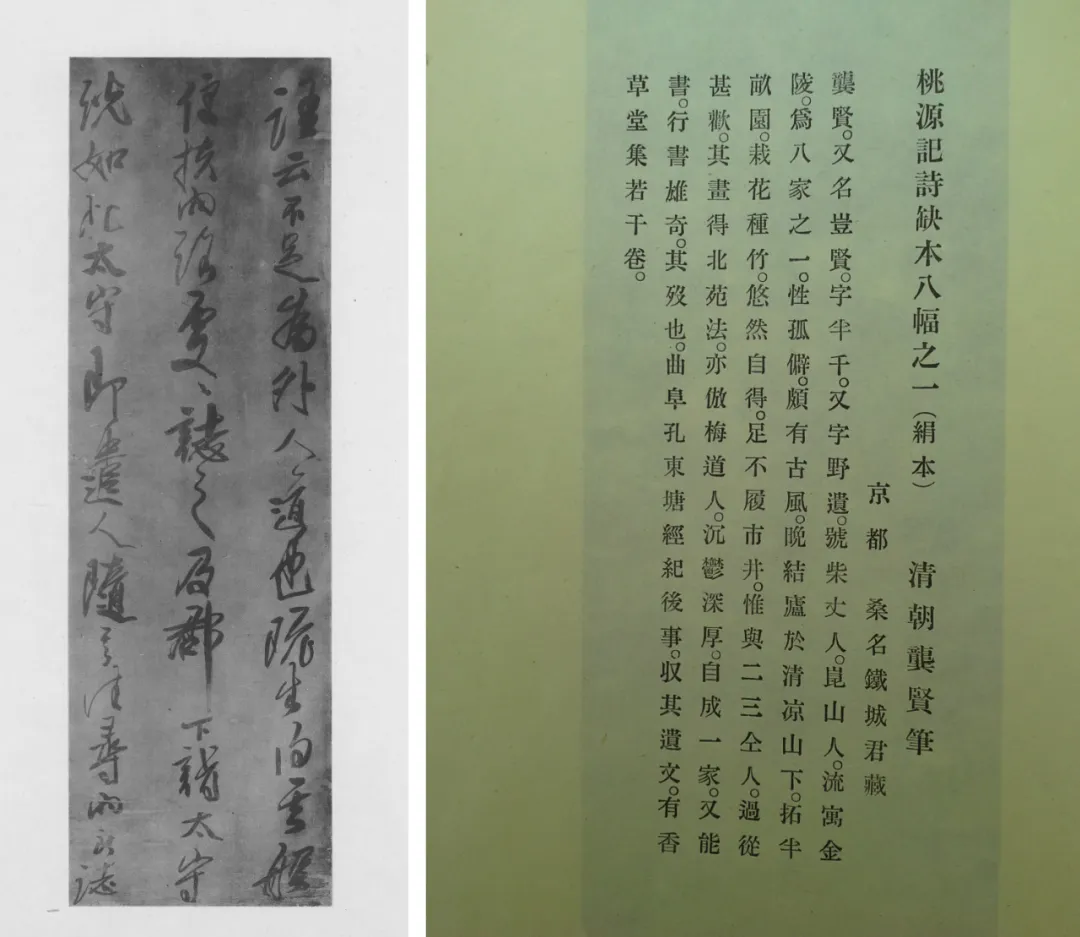 語云不足為外人道也既出得其船
便扶向路處〻誌之及郡下詣太守
說如此太守即遣人隨其往尋向所誌
桃源記詩缺本八幅之一（絹本） 清朝龔賢筆
京都 桑名鐵城君藏
龔賢。又名豈賢。字半千。又字野遺。號柴丈人。崑山人。流寓金
陵。爲八家之一。性孤僻。頗有古風。晚結廬於清凉山下。拓半
畝園。栽花種竹。悠然自得。足不履市井。惟與二三仝人。過從
甚歡。其畫得北苑法。亦倣梅道人。沉鬱深厚。自成一家。又能
書。行書雄奇。其歿也。曲阜孔東塘經紀後事。収其遺文。有香
草堂集若干卷。